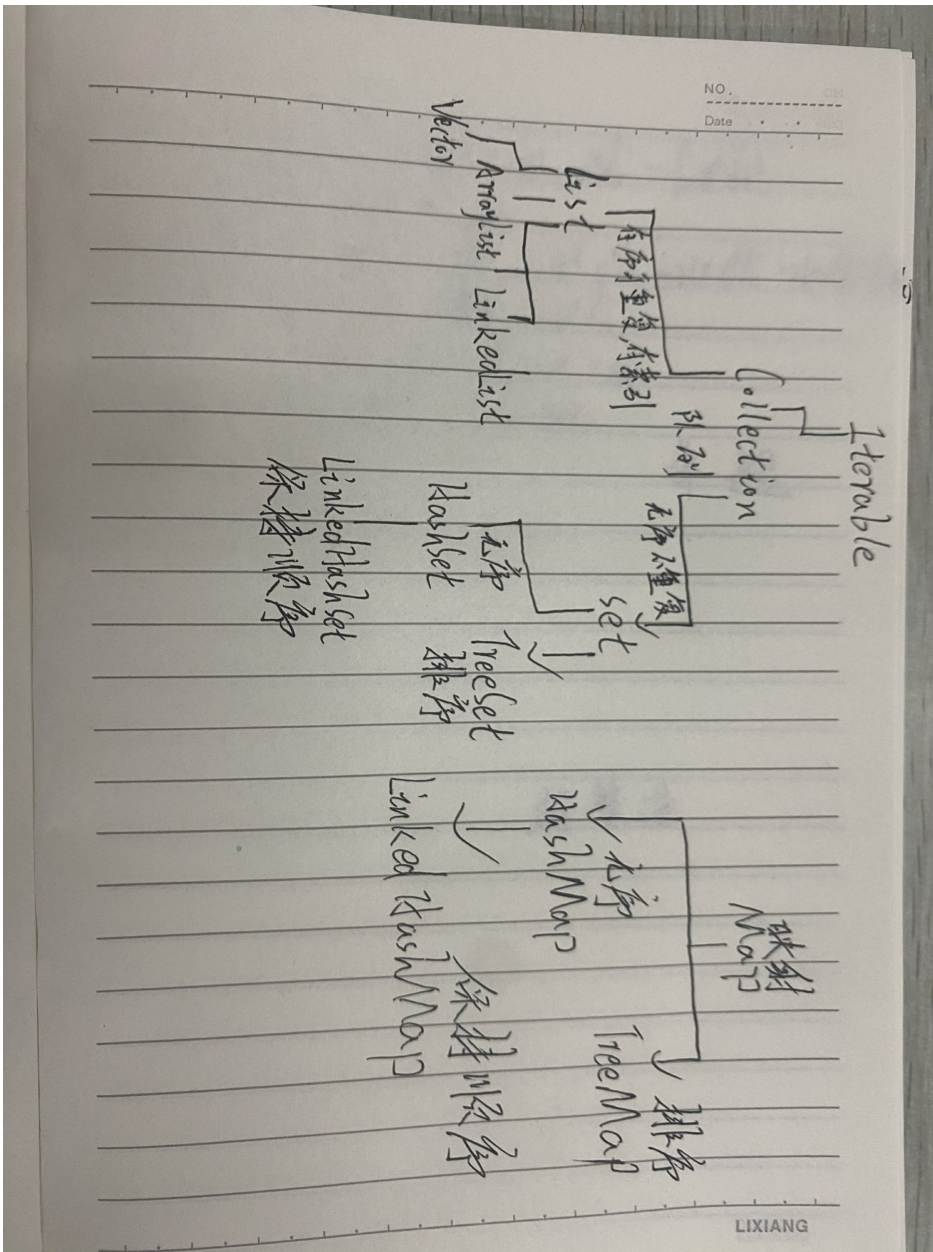 NO.
Date
Iterable
Collection
队列
List
有序有重复,有索引
Vector
ArrayList
LinkedList
无序不重复
set
无序
HashSet
LinkedHashSet
保持顺序
TreeSet
排序
映射
Map
无序
HashMap
LinkedHashMap
保持顺序
TreeMap
排序
LIXIANG